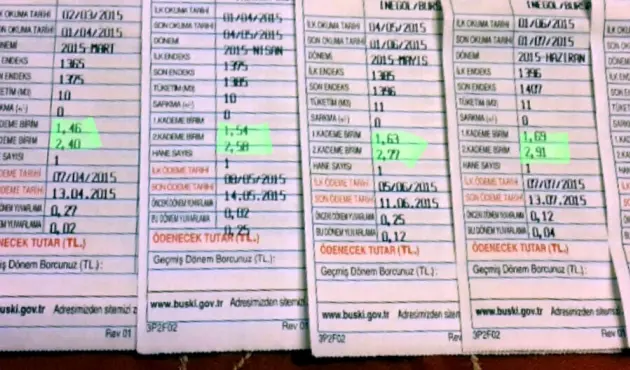 K OKUMA TARİHİ 02/03/2015
ON OKUMA TARİHİ 01/04/2015
ÖNEMİ 2015-MART
ENDEKS 1365
N ENDEKS 1375
ETİM (M3) 10
RKMA (+/-) 0
DEME BİRİM 1,46
DEME BİRİM 2,40
SAYISI 1
DEME TARİHİ 07/04/2015
DEME TARİHİ 13.04.2015
DÖNEM YUVARLAMA 0,27
DÖNEM YUVARLAMA 0,02
ENECEK TUTAR (TL.)
ş Dönem Borcunuz (TL.) :
uski.gov.tr Adresimizden sitemizi z
Rev 01
İLK OKUMA TARİHİ 01/04/2015
SON OKUMA TARİHİ 04/05/2015
DÖNEMİ 2015-NİSAN
İLK ENDEKS 1375
SON ENDEKS 1385
TÜKETİM (M3) 10
SARKMA (+/-) 0
1.KADEME BİRİM 1,54
2.KADEME BİRİM 2,58
HANE SAYISI 1
İLK ÖDEME TARİHİ 08/05/2015
SON ÖDEME TARİHİ 14.05.2015
ÖNCEKİ DÖNEM YUVARLAMA 0,02
BU DÖNEM YUVARLAMA 0,25
ÖDENECEK TUTAR (TL.)
Geçmiş Dönem Borcunuz (TL.) :
www.buski.gov.tr Adresimizden sitemizi
3P2F02 Rev 01
INEGOL/BURS
İLK OKUMA TARİHİ 04/05/2015
SON OKUMA TARİHİ 01/06/2015
DÖNEMİ 2015-MAYIS
İLK ENDEKS 1385
SON ENDEKS 1396
TÜKETİM (M3) 11
SARKMA (+/-) 0
1.KADEME BİRİM 1,63
2.KADEME BİRİM 2,77
HANE SAYISI 1
İLK ÖDEME TARİHİ 05/06/2015
SON ÖDEME TARİHİ 11.06.2015
ÖNCEKİ DÖNEM YUVARLAMA 0,25
BU DÖNEM YUVARLAMA 0,12
ÖDENECEK TUTAR (TL.)
Geçmiş Dönem Borcunuz (TL.) :
www.buski.gov.tr Adresimizden sitem
3P2F02 Rev
INEGOL/BURS
İLK OKUMA TARİHİ 01/06/2015
SON OKUMA TARİHİ 01/07/2015
DÖNEMİ 2015-HAZIRAN
İLK ENDEKS 1396
SON ENDEKS 1407
TÜKETİM (M3) 11
SARKMA (+/-) 0
1.KADEME BİRİM 1,69
2.KADEME BİRİM 2,91
HANE SAYISI 1
İLK ÖDEME TARİHİ 07/07/2015
SON ÖDEME TARİHİ 13.07.2015
ÖNCEKİ DÖNEM YUVARLAMA 0,12
BU DÖNEM YUVARLAMA 0,04
ÖDENECEK TUTAR (TL.)
Geçmiş Dönem Borcunuz (TL.) :
www.buski.gov.tr Adresimizden sitemizi
3P2F02 Rev 01